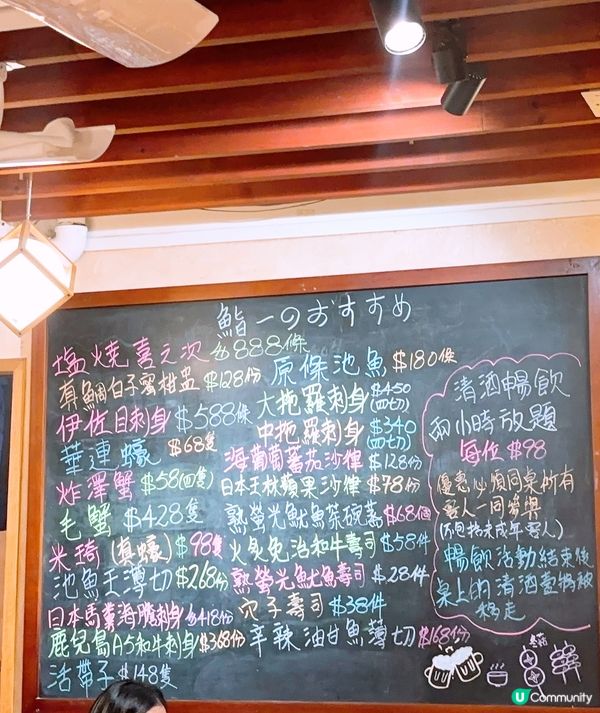 鮨一のおすすめ
塩燒喜之次 $888條
真鯛白子蜜柑盅 $128份
伊佐目刺身 $588條
華連蠔 $68隻
炸澤蟹 $58(四隻)
毛蟹 $428隻
米琦(真蠔) $98隻
池魚王薄切 $268份
日本馬糞海膽刺身 $418份
鹿兒島A5和牛刺身 $368份
活帶子 $148隻
原條池魚 $180條
大拖羅刺身 $450(四切)
中拖羅刺身 $340(四切)
海葡萄蕃茄沙律 $128份
日本王林蘋果沙律 $78份
熟螢光魷魚茶碗蒸 $68個
火炙免治和牛壽司 $58件
熟螢光魷魚壽司 $28件
穴子壽司 $38件
辛辣油甘魚薄切 $168份
清酒暢飲
兩小時放題
每位 $98
優惠必須同桌所有
客人一同參與
(不包括未成年客人)
暢飲活動結束後
桌上的清酒壺將被
移走
U Community